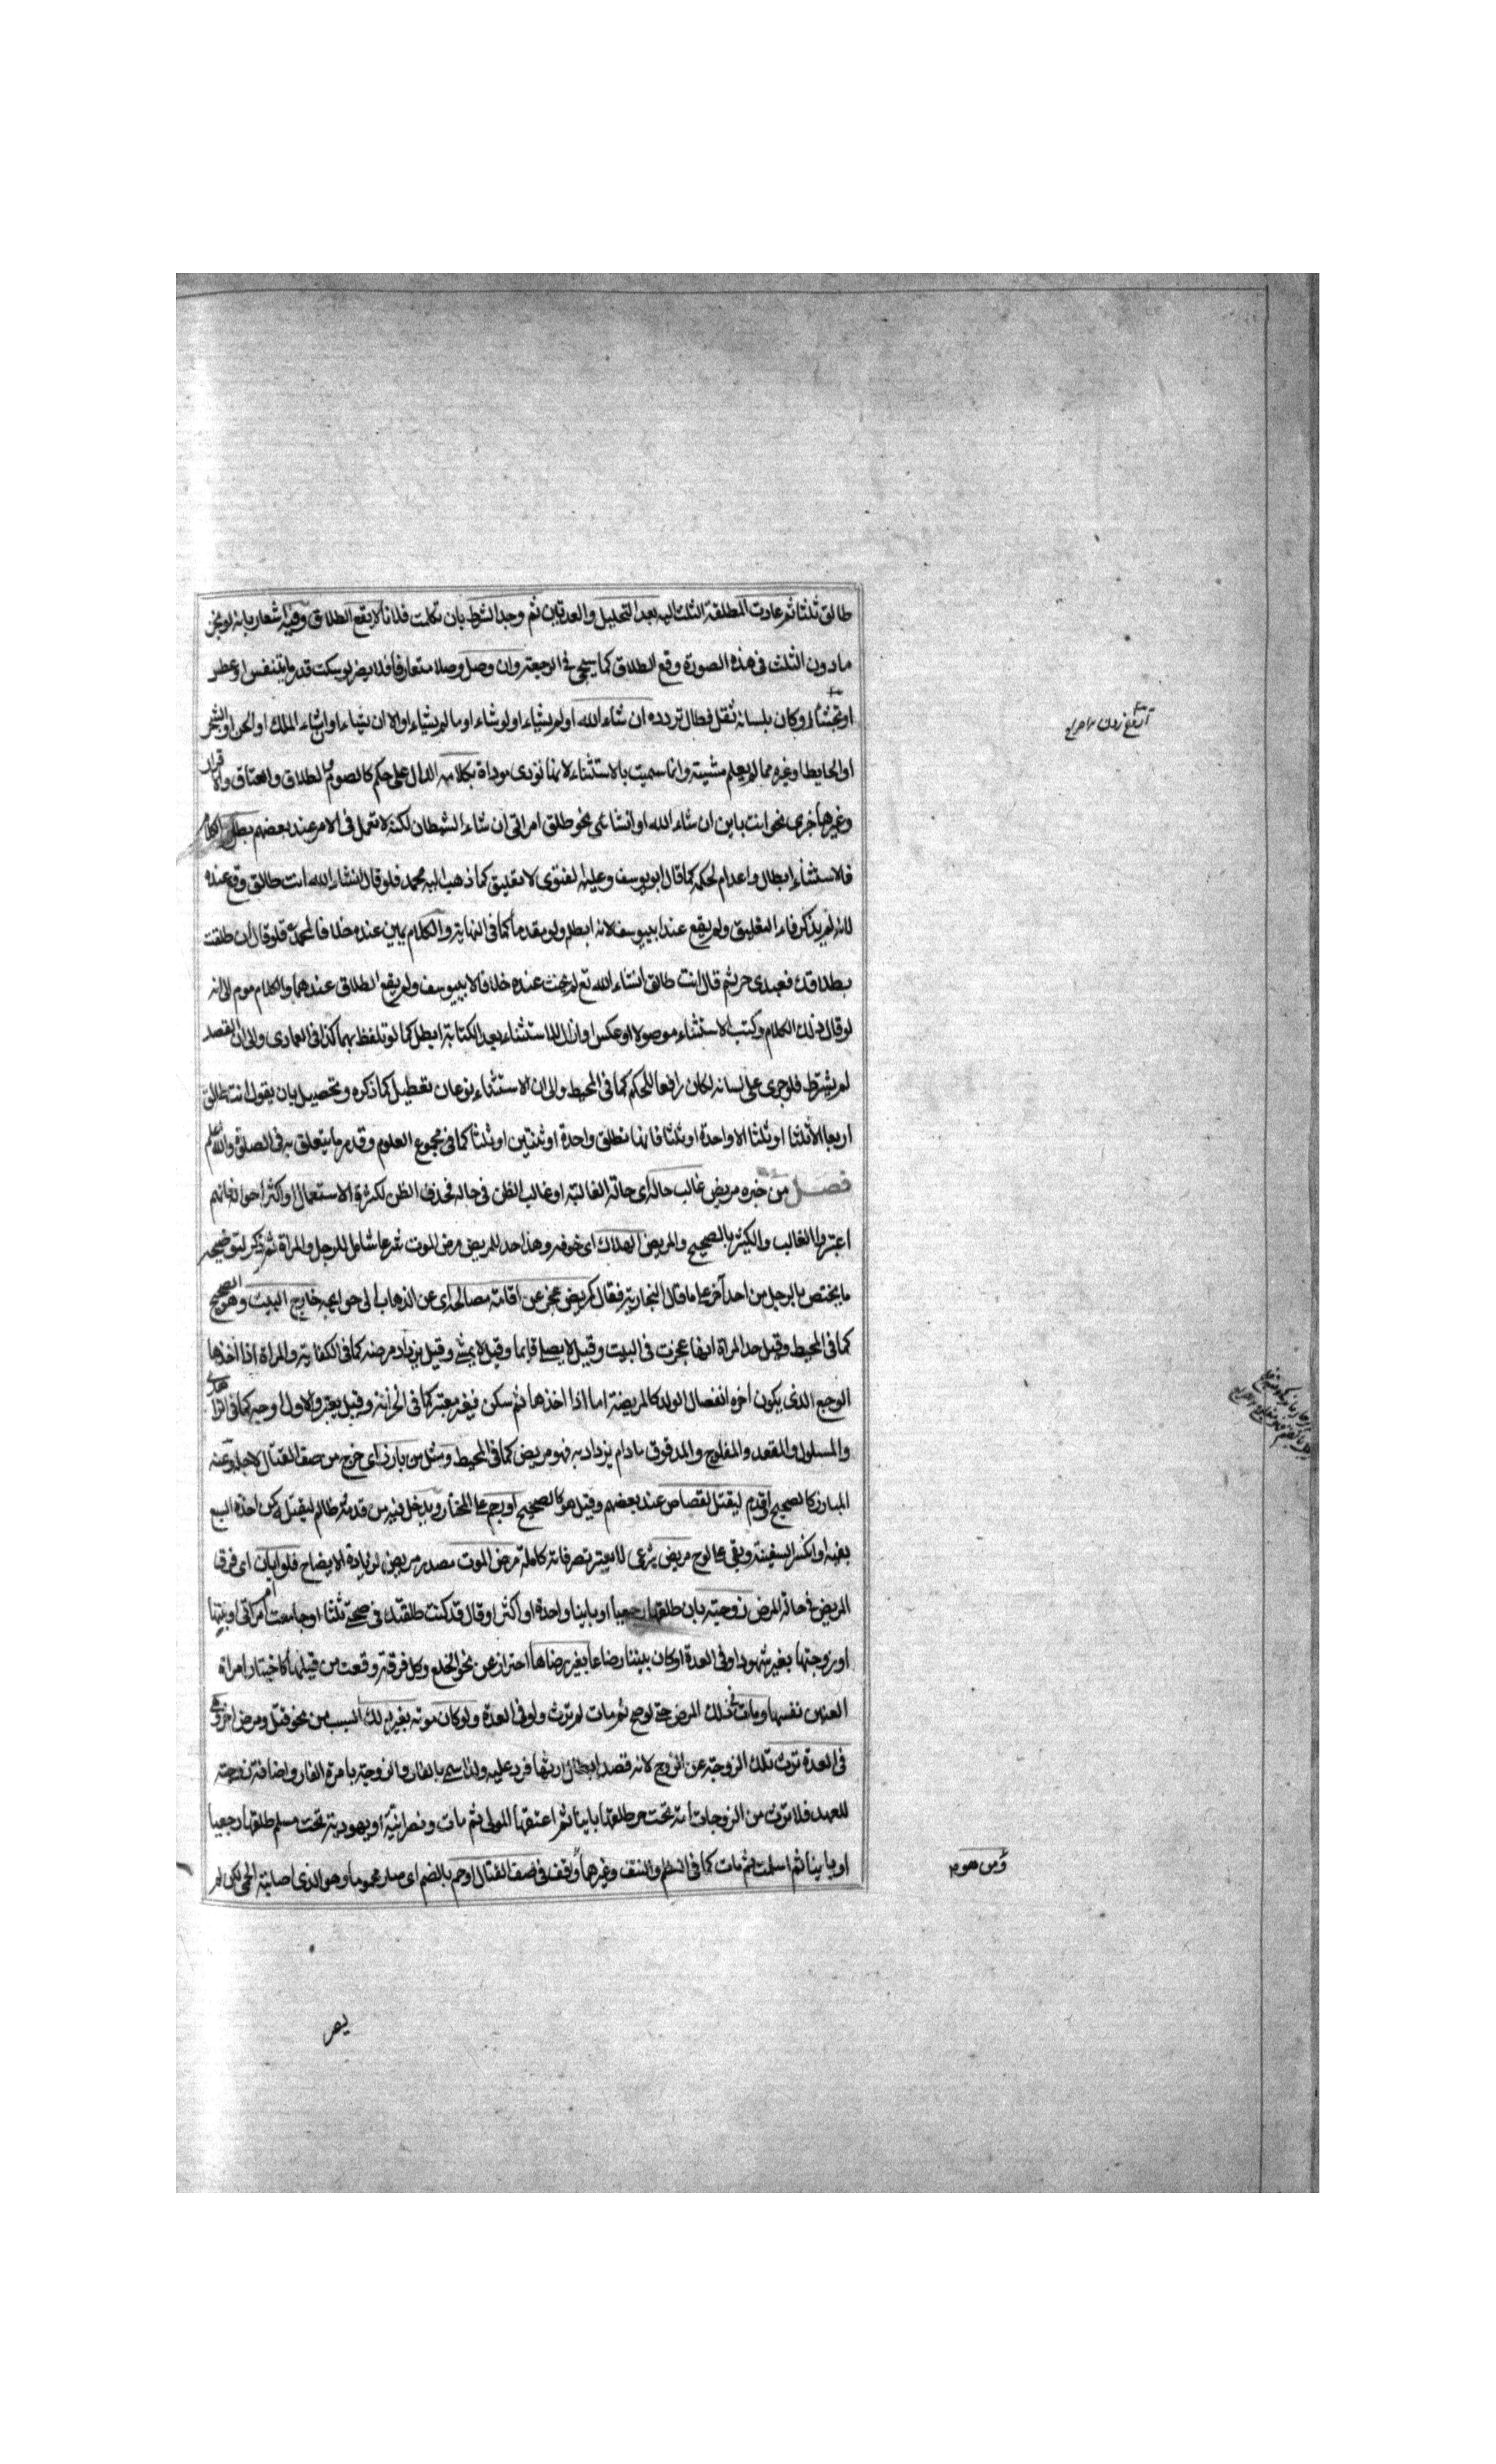 طالق ثلثا ثم عادت المطلقة الثلث اليه بعد التحليل والعدتين ثم وجد الشرط بان تكلمت فلانا لا يقع الطلاق وفيه اشعار بانه لو نجز
مادون الثلث فى هذه الصورة وقع الطلاق كما سيجئ فى الرجعة وان وصل وصلا متعارفا فلا يضر لو سكت قدر ما يتنفس او عطس
او تجشأ او كان بلسانه ثقل فطال تردده ان شاء الله او لم يشاء او لو شاء او ما لم يشاء او الا ان يشاء او ان شاء الملك او الجن او الشجر
او الحايط او غيره مما لم يعلم مشيته وانما سميت بالاستثناء لانها تؤدى موداة بكلامه الدال على حكم كالصوم والطلاق والعتاق والاقرار
وغيرها خبرى نحو انت باين ان شاء الله او انشائى نحو طلق امراتى ان شاء الشيطان لكنه لا تعمل فى الامر عند بعضهم بطل الكلام
فالاستثناء ابطال واعدام لحكمه كما قال ابو يوسف وعليه الفتوى لا تعليق كما ذهب اليه محمد فلو قال انشاء الله انت طالق وقع عنده
لانه لم يذكر فاء التعليق ولم يقع عند ابى يوسف لانه ابطله ولو مقدما كما فى النهاية والكلام يمين عنده خلافا لمحمد فلو قال ان طلقت
بطلاقك فعبدى حر ثم قال انت طالق انشاء الله تع لم يحنث عنده خلافا لابى يوسف ولم يقع الطلاق عندهما والكلام موم الى انه
لو قال ذلك الكلام وكتب الاستثناء موصولا او عكس او ازال الاستثناء بعد الكتابة ابطل كما لو تلفظ بهما كذا فى العمادى والى ان القصد
لم يشترط فلو جرى على لسانه لكان رافعا للحكم كما فى المحيط والى ان الاستثناء نوعان تعطيل كما ذكره وتحصيل بان يقول انت طالق
اربعا الا ثلثا او ثلثا الا واحدة او ثلثا فانها تطلق واحدة او ثنتين او ثلثا كما فى مجموع العلوم وقد مر ما يتعلق به فى الصلوة والله اعلم
فصل من خبره مريض غالب حاله اى حاله الغالبة او غالب الظن فى حاله فحذف الظن لكثرة الاستعمال او اكثر احواله فانهم
اعتبروا الغالب والكثير بالصحيح والمريض الهلاك اى خوفه وهذا حد للمريض مرض الموت شرعا شامل للرجل والمراة ثم ذكر لتوضيحه
ما يختص بالرجل من احد آخر على ما قال النجارية فقال كمريض عجز عن اقامة مصالحه اى عن الذهاب الى حوايجه خارج البيت وهو الصحيح
كما فى المحيط وقيل حد المراة انها عجزت فى البيت وقيل لا يصلى قايما وقيل لا يمشى وقيل يزياد مرضه كما فى الكفاية والمراة اذا اخذها
الوجع الذى يكون اخره انفصال الولد كالمريضة اما اذا اخذها ثم سكن فيغر معتبر كما فى الخزانة وقيل يعتبر والاول اوجه كما فى الزاهدى
والمسلول والمقعد والمفلوج والمدقوق مادام يزداد به فهو مريض كما فى المحيط ومثل من بارز اى خرج من صف القتال لاجله وعنه
المبارز كالصحيح او قدم ليقتل لقصاص عند بعضهم وقيل هو كالصحيح او رجم على المختار ويدخل فيه من قدمه ظالم ليقتل ومن اخذه السبع
بفيه او انكسر السفينة وبقى على لوح مريض شرعى لا يعتبر تصرفاته كاملة مرض الموت مصدر مريض لزيادة الايضاح فلو ابان اى فرق
المريض فى حالة المرض زوجته بان طلقها رجعيا او باينا واحدة او اكثر او قال قد كنت طلقتك فى صحتى ثلثا او جامعت ام امراتى او بنتها
او تزوجتها بغير شهود او فى العدة او كان بيننا رضاعا بغير رضاها احتراز عن نحو الخلع وكل فرقة وقعت من قبلها كاختيار امراة
العنين نفسها ومات فى ذلك المرض حتى لو صح ثم مات لم ترث ولو فى العدة ولو كان موته بغير ذلك السبب من نحو قتل ومرض اخر وهى
فى العدة ترث تلك الزوجة عن الزوج لانه قصد ابطال ارثها فرد عليه ولذا سمى بالفار والزوجة بامرة الفار واضافة زوجته
للعهد فلا ترث من الزوجات امة تحت حر طلقها باينا ثم اعتقها المولى ثم مات ونصرانية او يهودية تحت مسلم طلقها رجعيا
او باينا ثم اسلمت ثم مات كما فى النظم والنتف وغيرهما وقف فى صف القتال او حم بالضم اى صار محموما وهو الذى اصابته الحمى لكن لم
آروغ زدن
ومن هو م
يصر